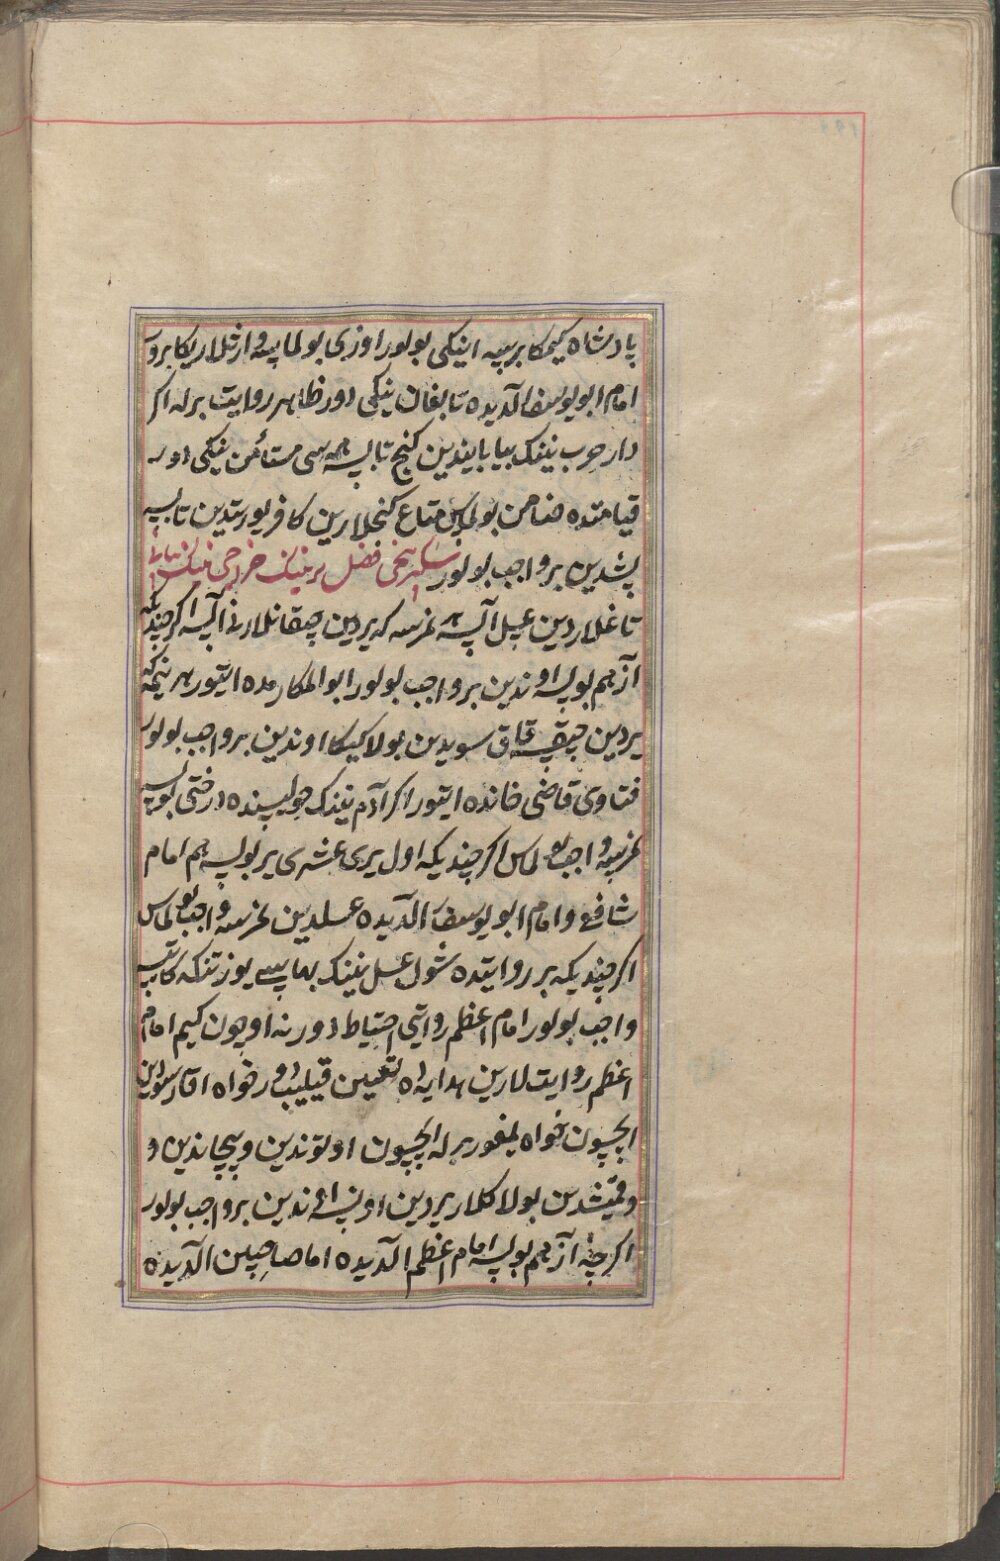 پادشاه کیمکا برسه اینکی بولور اوزی بولماسه وارثلاریکا برور
امام ابو یوسف الدیده تابغان نینکی دور ظاهر روایت برله اکر
دار حرب نینک بیابانیدین کنج تاپسه همه سی مستأمن نینکی دور
قیامتده ضامن بولماس متاع کنجلارین کافر یورتیدین تاپسه
بشدین بر واجب بولور سکیزنجی فصل یرنینک خراجی نینک بیانی
تاغلاردین عسل آلسه هر نرسه که یردین چیقانلارنی آلسه اکر چندیکه
آز هم بولسه اوندین بر واجب بولور ابو المکارمده ایتور هر نیمه که
یردین چیقسه قاق سویدین بولا کیکا اوندین بر واجب بولور
فتاوی قاضی خانده ایتور اکر آدم نینک حولیسنده درختی بولسه
نرسه واجب بولماس اکر چندیکه اول یری عشری یر بولسه هم امام
شافعی و امام ابو یوسف الدیده عسلدین نرسه واجب بولماس
اکر چندیکه بر روایتده شول عسل نینک بهاسی یوز تنکه کا یتسه
واجب بولور امام اعظم روایتی احتیاط دور نه اوچون کیم امام
اعظم روایت لارین هدایه ده تعیین قیلیب دور خواه اقار سودین
ایچسون خواه یمغور برله ایچسون اوتوندین و پیچاندین و
و قمیشدین بولاکلار یردین اونسه اوندین بر واجب بولور
اکرچه آز هم بولسه امام اعظم الدیده اما صاحبین الدیده